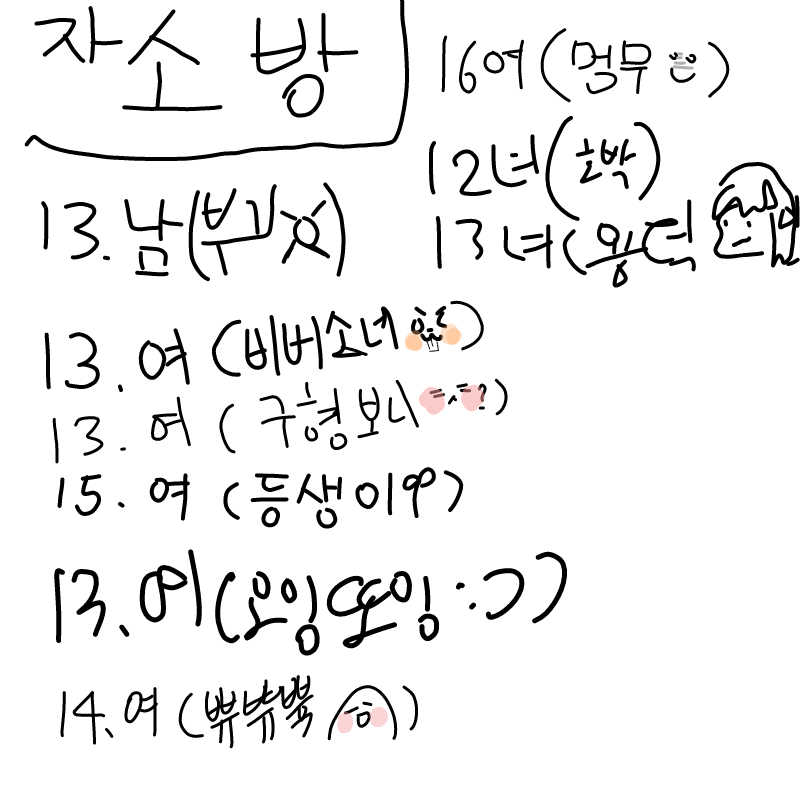 자소 방
16여(멈무)
12녀(호박)
13녀(왕턱
13. 남(부기
13. 여 (비버소녀
13. 여 ( 구형보니 ?)
15. 여 (등생이)
13. 여(요잉또잉:))
14. 여 (쀼쀼쀽)